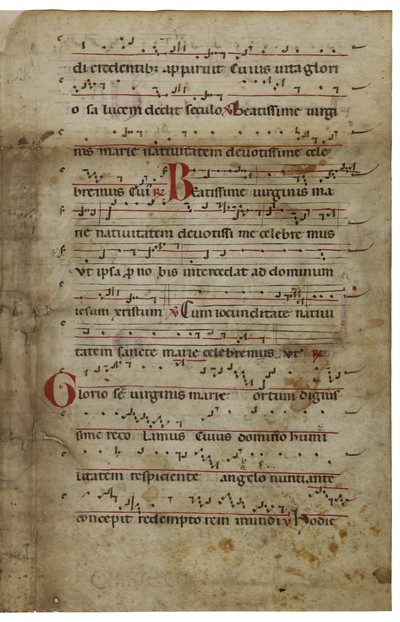 di credentibꝫ apparuit Cuius uita glori
o sa lucem dedit seculo. ℣ Beatissime uirgi
nis marie natiuitatem deuotissime cele
bremus Cui9 ℟ Beatissime uirginis ma
rie natiuitatem deuotissi me celebre mus
vt ipsa ꝓ no bis intercedat ad dominum
iesum xristum ℣ Cum iocunditate natiui
tatem sancte marie celebremus. vt ℟
Glorio sę uirginis marie ortum dignis
sime reco Lamus Cuius domino humi
litatem respiciente angelo nuntiante
concepit redempto rem mundi ℣ Hodie